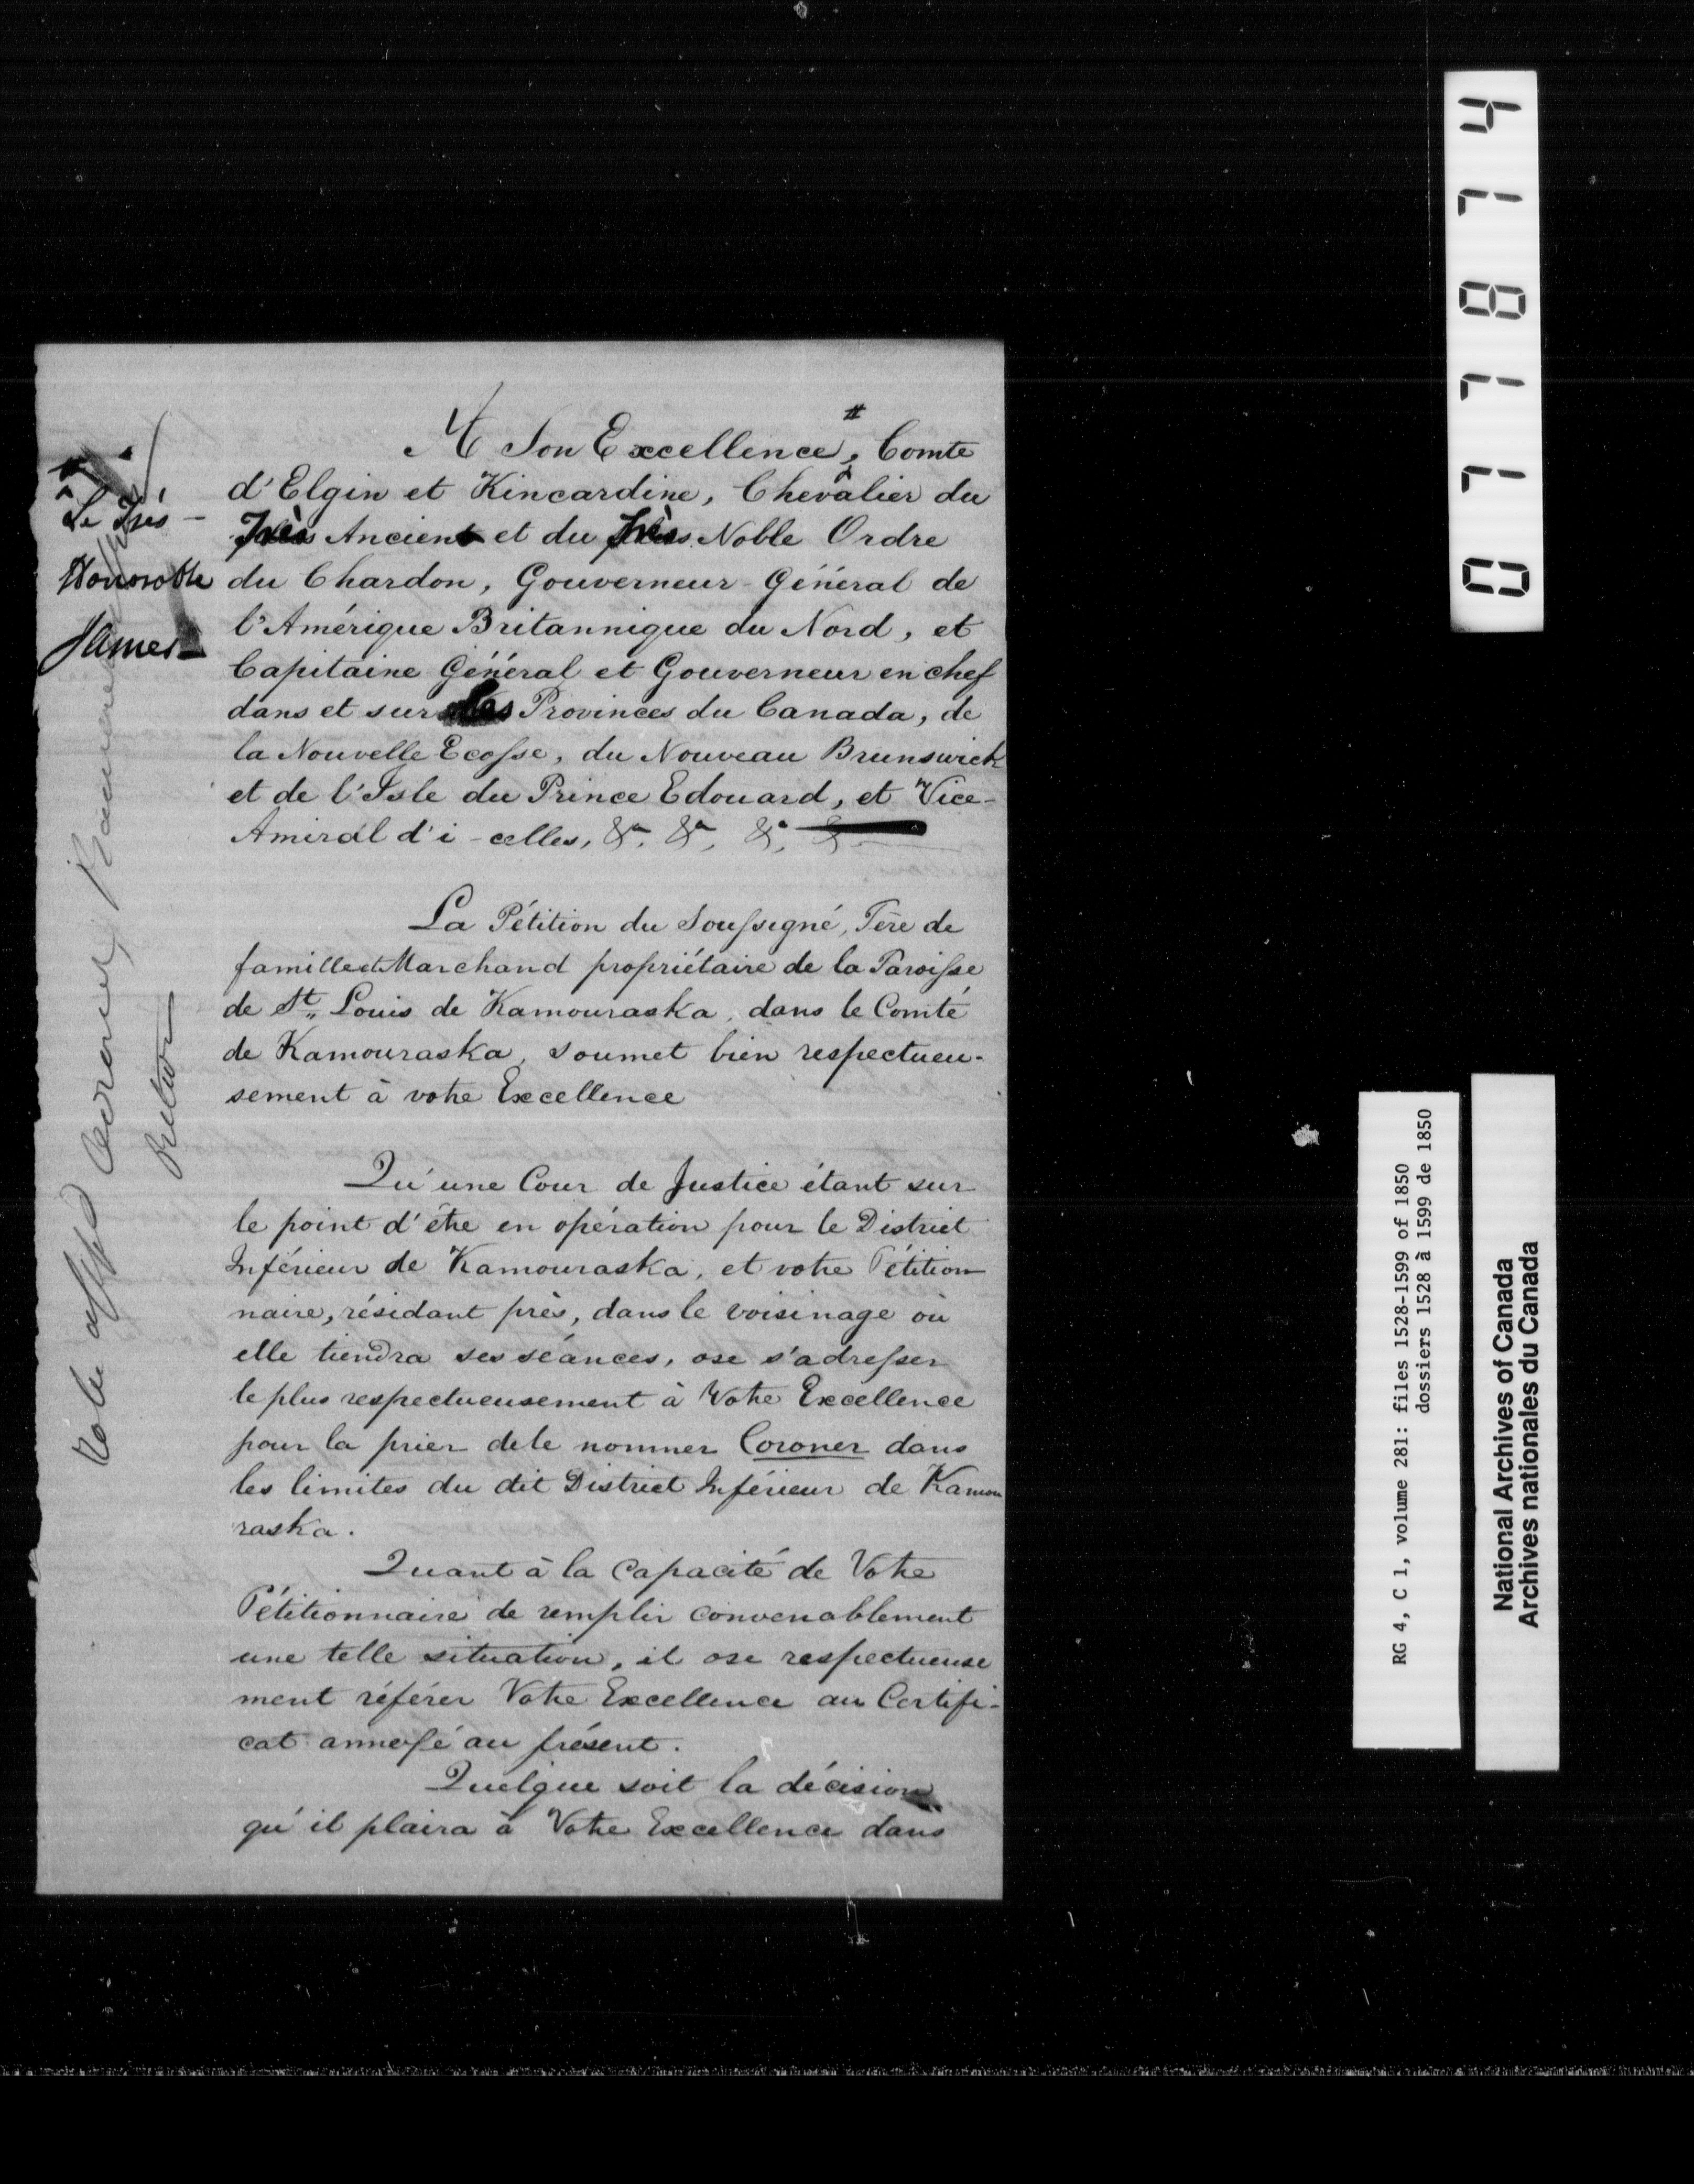 A Son Excellence, # Comte
d'Elgin et Kincardine, Chevalier du
Très Ancien et du Très Noble Ordre
du Chardon, Gouverneur Général de
l'Amérique Britannique du Nord, et
Capitaine Général et Gouverneur en chef
dans et sur les Provinces du Canada, de
la Nouvelle Ecosse, du Nouveau Brunswick
et de l'Isle du Prince Edouard, et Vice-
Amiral d'i-celles, &a, &a, &a,
# Le Très-
Honorable
James
La Pétition du Soussigné, Père de
famille et Marchand propriétaire de la Paroisse
de St. Louis de Kamouraska, dans le Comté
de Kamouraska, soumet bien respectueu-
sement à votre Excellence
Qu'une Cour de Justice étant sur
le point d'être en opération pour le District
Inférieur de Kamouraska, et votre Pétition
naire, résidant près, dans le voisinage où
elle tiendra ses séances, ose s'adresser
le plus respectueusement à Votre Excellence
pour la prier de le nommer Coroner dans
les limites du dit District Inférieur de Kamou
raska.
Quant à la Capacité de Votre
Pétitionnaire de remplir convenablement
une telle situation, il ose respectueuse
ment référer Votre Excellence au Certifi-
cat annexé au présent.
Quelque soit la décision
qu'il plaira à Votre Excellence dans
To be appd Coroner Kamouraska
077874
RG 4, C 1, volume 281: files 1528-1599 of 1850
dossiers 1528 à 1599 de 1850
National Archives of Canada
Archives nationales du Canada